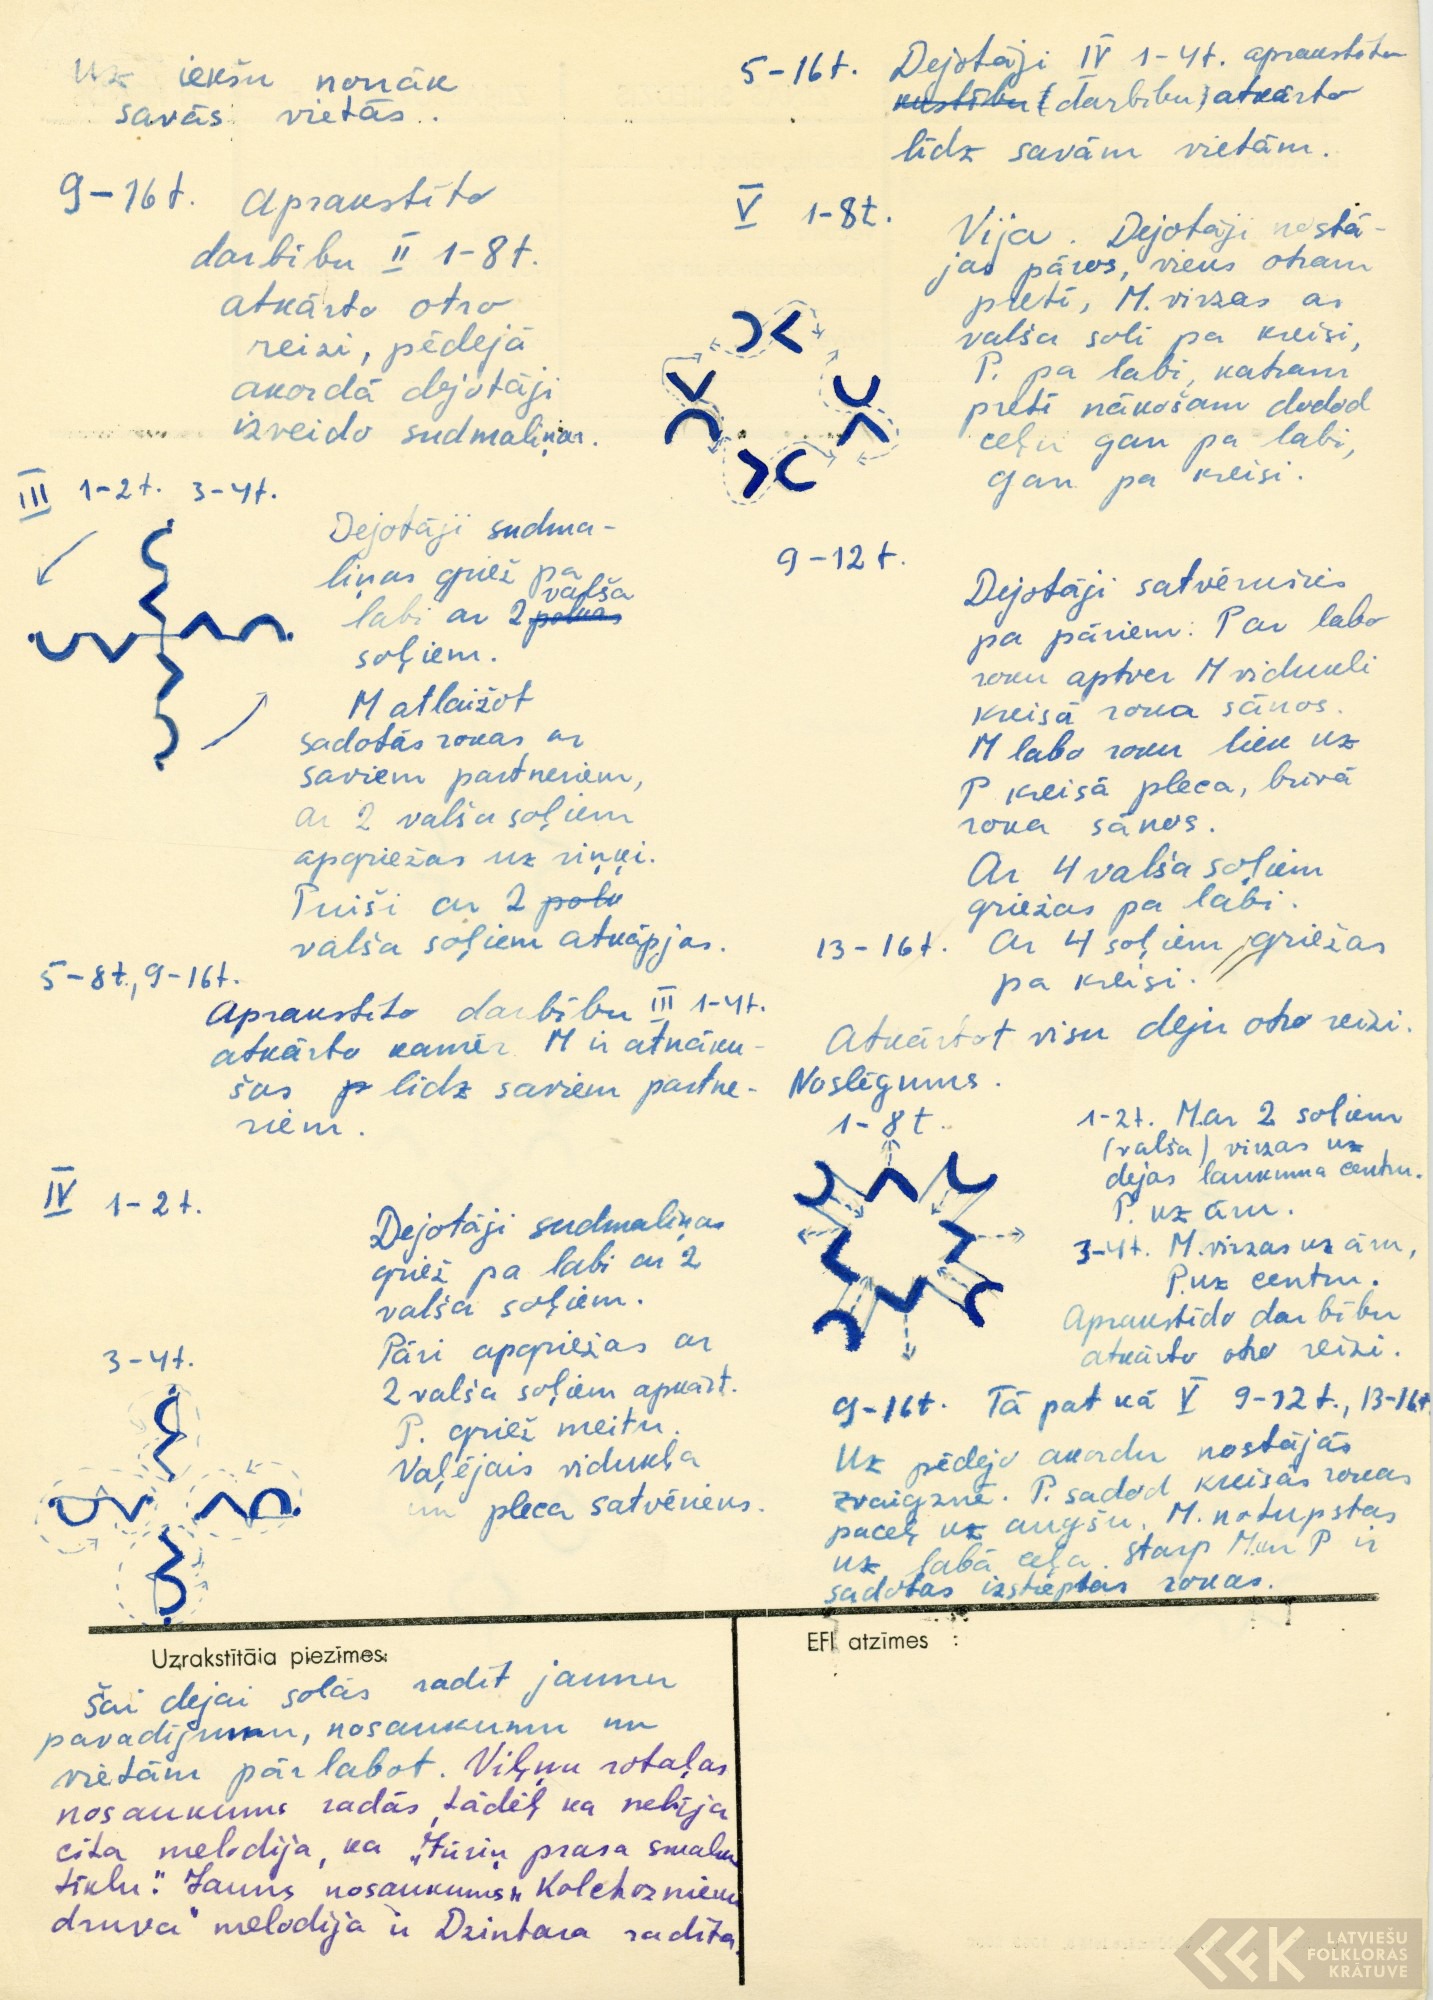 Uz iekšu nonāk
savās vietās.
9-16t. Aprakstīto
darbību II 1-8t.
atkārto otro
reizi, pēdējā
akordā dejotāji
izveido sudmaliņas.
III 1-2t. 3-4t.
Dejotāji sudma-
liņas griež pa
valša
labi ar 2 polkas
soļiem.
M atlaižot
sadotās rokas ar
saviem partneriem,
ar 2 valša soļiem
apgriežas uz riņķi.
Puiši ar 2 polk
valša soļiem atkāpjas.
5-8t., 9-16t.
Aprakstīto darbību III 1-4t.
atkārto kamēr M ir atnāku-
šas p līdz saviem partne-
riem.
IV 1-2t.
Dejotāji sudmaliņas
griež pa labi ar 2
valša soļiem.
3-4t.
Pāri apgriežas ar
2 valša soļiem apkārt.
P. griež meitu.
Vaļējais vidukļa
un pleca satvēriens.
5-16t. Dejotāji IV 1-4t. aprakstīto
kustību (darbību) atkārto
līdz savām vietām.
V 1-8t.
Vija. Dejotāji nostā-
jas pāros, viens otram
pretī, M. virzas ar
valša soli pa kreisi,
P. pa labi, katram
pretī nākošam dodod
ceļu gan pa labi,
gan pa kreisi.
9-12t.
Dejotāji satvērušies
pa pāriem: P ar labo
roku aptver M vidukli
kreisā roka sānos.
M labo roku liek uz
P kreisā pleca, brīvā
roka sānos.
Ar 4 valša soļiem
griežas pa labi.
13-16t. Ar 4 soļiem griežas
pa kreisi.
Atkārtot visu deju otro reizi.
Noslēgums.
1-8t.
1-2t. M.ar 2 soļiem
(valša) virzas uz
dejas laukuma centru.
P. uz āru.
3-4t. M.virzas uz āru,
P.uz centru.
Aprakstīdo darbību
atkārto otro reizi.
9-16t. Tā pat kā V 9-12t., 13-16t.
Uz pēdējo akordu nostājās
zvaigznē. P. sadod kreisās rokas
paceļ uz augšu. M. notupstas
uz labā ceļa. starp M.un P ir
sadotas izstieptas rokas.
Uzrakstītāja piezīmes:
Šai dejai solās radīt jaunu
pavadījumu, nosaukumu un
vietām pārlabot. Viļņu rotaļas
nosaukums radās, tādēļ ka nebija
cita melodija, ka „Jūriņ prasa smalku
tīklu". Jauns nosaukums „Kolchoznieku
druva" melodija ir Dzintara radīta.
EFI atzīmes :
LATVIEŠU
FOLKLORAS
KRĀTUVE